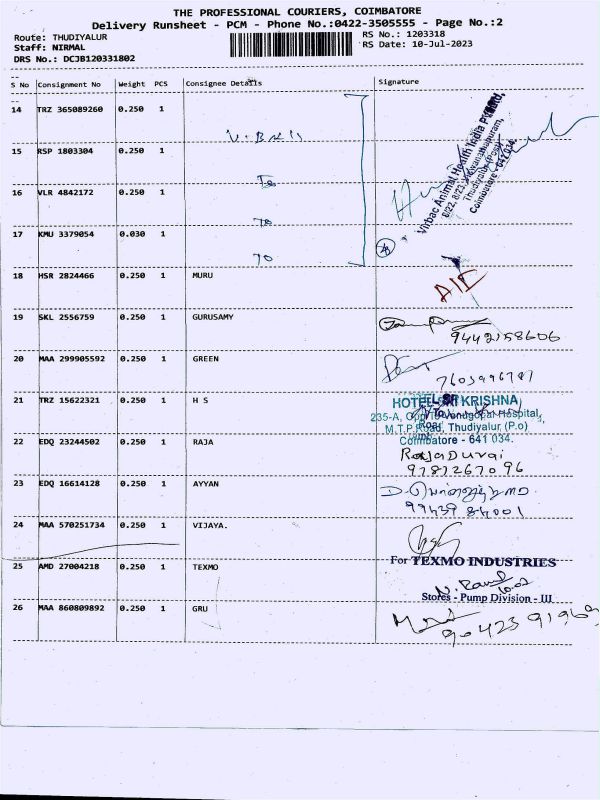 THE PROFESSIONAL COURIERS, COIMBATORE
Delivery Runsheet - PCM - Phone No.:0422-3505555 - Page No.:2
Route: THUDIYALUR RS No.: 1203318
Staff: NIRMAL RS Date: 10-Jul-2023
DRS No.: DCJB120331802
S No Consignment No Weight PCS Consignee Details Signature
14 TRZ 365089260 0.250 1
15 RSP 1803304 0.250 1
16 VLR 4842172 0.250 1
17 KMU 3379054 0.030 1
Virbac Animal Health India Pvt Ltd,
Thudiyalur (Post)
Coimbatore - 641 034.
18 HSR 2824466 0.250 1 MURU
19 SKL 2556759 0.250 1 GURUSAMY
9442158606
20 MAA 299905592 0.250 1 GREEN
21 TRZ 15622321 0.250 1 H S
HOTEL SRI KRISHNA
235-A, Opp. Hospital,
M.T.P. Road, Thudiyalur (P.o)
Coimbatore - 641 034.
22 EDQ 23244502 0.250 1 RAJA
RajaDurai
9781267096
23 EDQ 16614128 0.250 1 AYYAN
99439 84001
24 MAA 570251734 0.250 1 VIJAYA.
25 AMD 27004218 0.250 1 TEXMO
For TEXMO INDUSTRIES
Stores - Pump Division - III
26 MAA 860809892 0.250 1 GRU